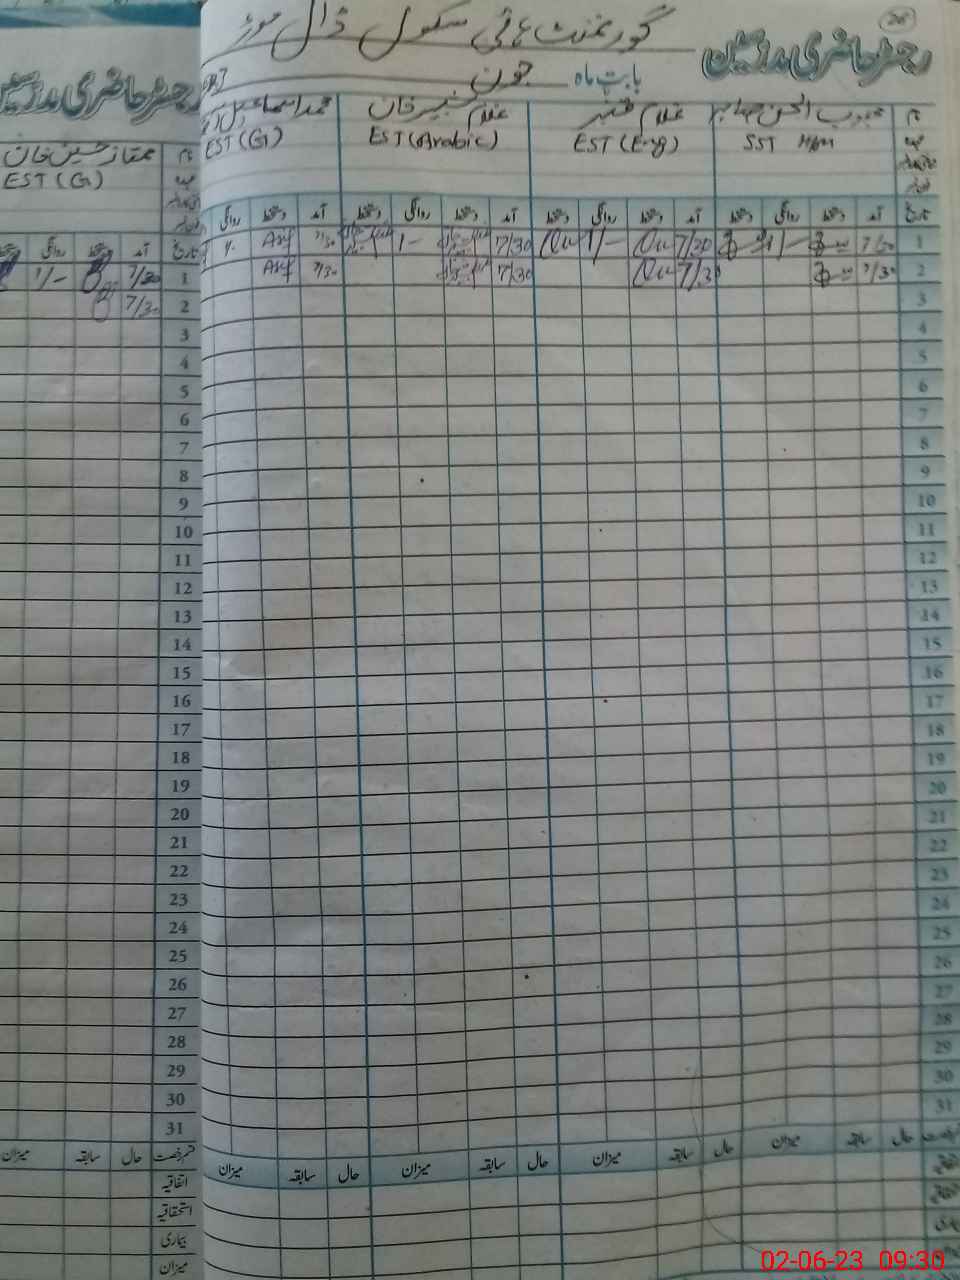 گورنمنٹ ہائی سکول ڈال موڑ
26
رجسٹر حاضری مدرسین
بابت ماہ جون
محبوب الحسن
غلام قنبر
غلام خان
محمد اسماعیل
SST
EST (Eng)
EST (Arabic)
EST (G)
تاریخ آمد دستخط روانگی دستخط آمد دستخط روانگی دستخط آمد دستخط روانگی دستخط آمد دستخط روانگی
1 7/30 1/- 7/30 1/- 7/30 1/- 7/30 Asif
2 7/30 7/30 7/30 Asif
3
4
5
6
7
8
9
10
11
12
13
14
15
16
17
18
19
20
21
22
23
24
25
26
27
28
29
30
31
حال سابقہ میزان حال سابقہ میزان حال سابقہ میزان حال سابقہ میزان
رجسٹر حاضری مدرسین
نام ممتاز حسین خان
عہدہ EST (G)
تاریخ آمد دستخط روانگی دستخط
1 7/30 1/-
2 7/30
3
4
5
6
7
8
9
10
11
12
13
14
15
16
17
18
19
20
21
22
23
24
25
26
27
28
29
30
31
قسم رخصت حال سابقہ میزان
اتفاقیہ
استحقاقیہ
بیماری
میزان
02-06-23 09:30